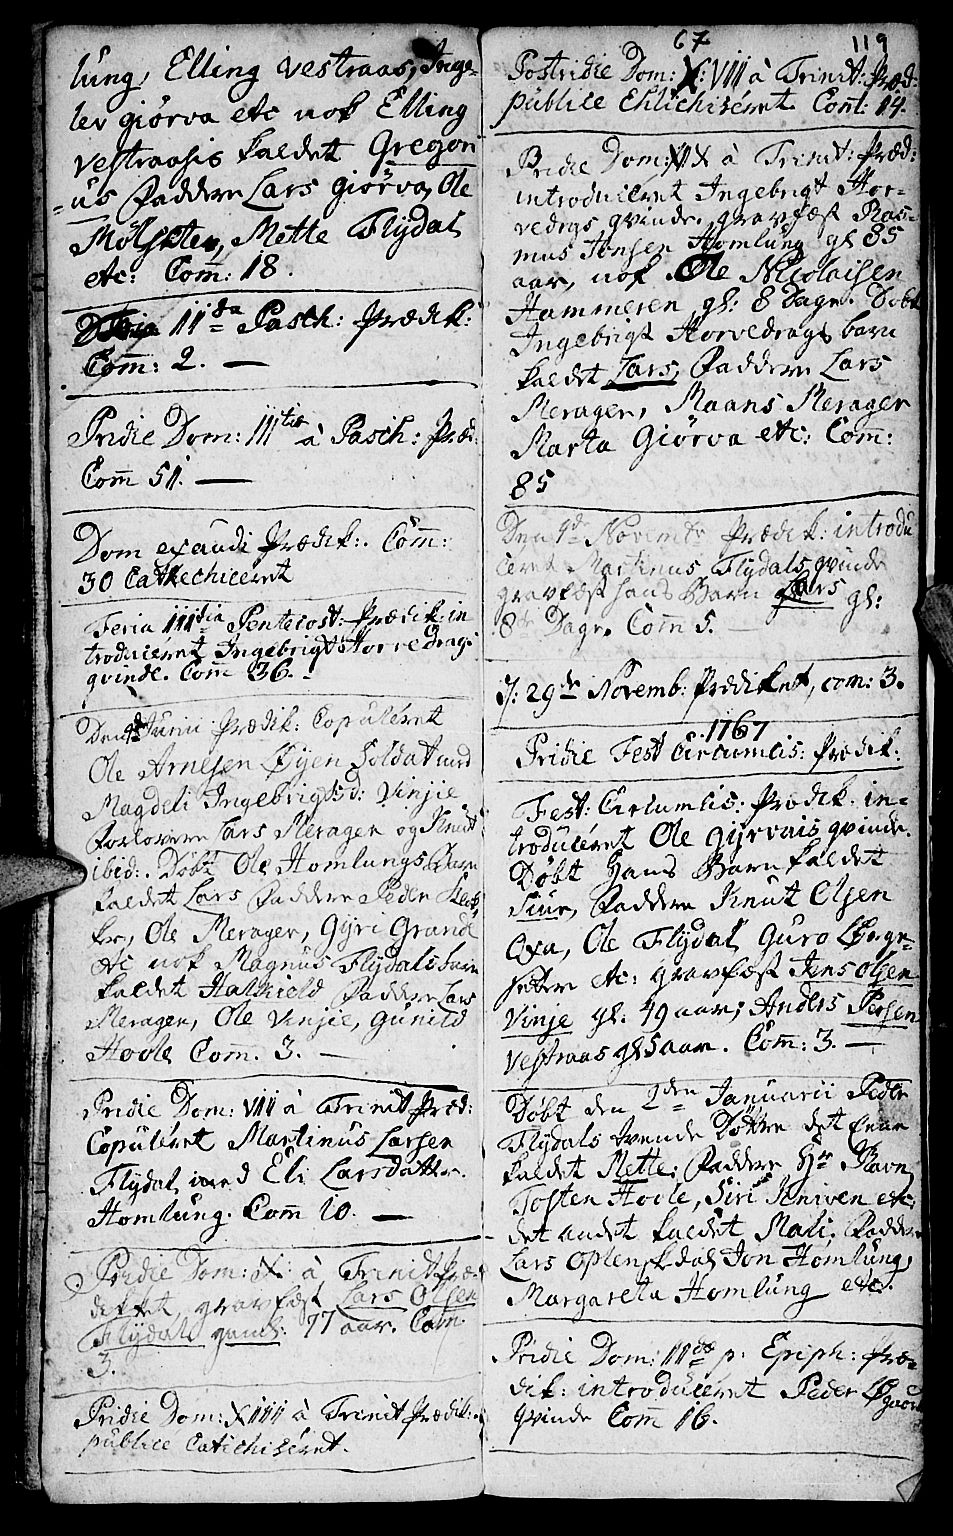 lung, Elling Vestraas, Inge-
lev Giörva etc nok Elling
Vestraasis kaldet Gregori-
us Faddere Lars Giörva, Ole
Mölseter, Mette Flydal
etc: Com̄: 18.
Feria IIda Pasch: Prædik:
Com̄: 2. —
Pridie Dom: IIItia à Pasch: Præd:
Com̄ 51. —
Dom exaudi Prædik:. Com̄:
30 Cathechiceret
Feria IIIdia Pentecost: Prædik: in
troduceret Ingebrigt Horvedrags
qvinde. Com̄ 36. -
Den Junii Prædik: Copuleret
Ole Arnesen Öyen Soldat med
Magdeli Ingebrigtsd: Vinjie
Forlovere Lars Merager og Knut
ibid:. Döbt Ole Homlungs Barn
kaldet Lars Faddere Peder
Ole Merager, Gyri Grande
etc nok Magnus Flydals barn
kaldet Faddere Lars
Merager, Ole Vinjie, Gunild
Hoole Com̄. 3. —
Pridie Dom: VII à Trinit Præd:
Copuleret Martinus Larsen
Flydal med Eli Larsdatter
Homlung. Com̄ 10. —
Pridie Dom: X: à Trinit Præ-
diket, gravfæst Lars Olsen
Flydal gaml: 77 aar. Com̄
3.
Pridie Dom: XIII à Trinit Prædik:
publice Catichiseret.
67 119
Postridie Dom: VII à Trinit: Præd:
publice Chatichiseret Com̄: 14.
Pridie Dom: X à Trinit: Præd:
introduceret Ingebrigt Hor-
vedrags qvinde, gravfæst Ras-
mus Jonsen Homlung gl 85
aar, nok Ole Nicolaisen
Hammeren gl: 8 Dage. Döbt
Ingebrigt Horvedrags barn
kaldet Lars, Faddere Lars
Merager, Maans Merager
Marta Giörva etc: Com̄:
85
Den Novembr Prædik: introdu
ceret Martinus Flydals qvinde
gravfæst hans Barn Lars gl:
8 Dage. Com̄ 5.
29de Novemb: Prædiket, com: 3.
1767
Pridie Fest Circumcis: Prædik:
Fest: Circumcis: Prædik: in-
troduceret Ole Gjörvais qvinde.
Döbt hans Barn kaldet
Siur, Faddere Knut Olsen
Oxa, Ole Flydal Guro
etc: gravfæst Jens Olsen
Vinje gl: 49 aar; Anders
Vestraas gl 5 aar. Com̄: 3. —
Döbt den 2den Januarii Peder
Flydals tvende Döttre det eene
kaldet Mette; Faddere Hr
Tosten Hoole, Siri etc:
det andet kaldet Mali. Faddere
Lars Oplenskdal Jon Homlung,
Margareta Homlung etc.
Pridie Dom: IIda p: Epiph: Præ-
dik: introduceret Peder
qvinde Com̄ 16.